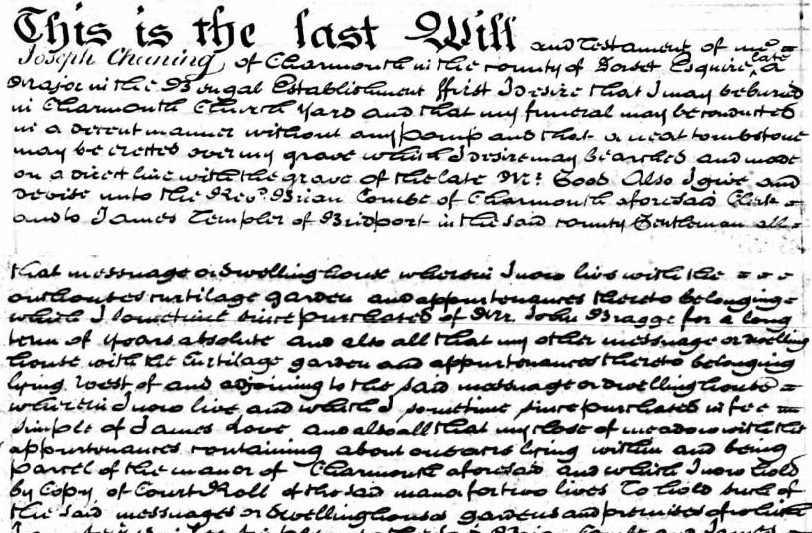 This is the last Will and Testament of me
Joseph Channing of Charmouth in the county of Dorset Esquire late a
Major in the Bengal Establishment ffirst I desire that I may be buried
in Charmouth Church Yard and that my funeral may be conducted
in a decent manner without any pomp and that a neat tombstone
may be erected over my grave which I desire may be arched and made
on a direct line with the grave of the late Mr. Good Also I give and
devise unto the Revd. Brian Combe of Charmouth aforesaid Clerk
and to James Templer of Bridport in the said county Gentleman all
that messuage or dwelling house wherein I now live with the
outhouses curtilage garden and appurtenances thereto belonging
which I sometime since purchased of Mr. John Bragge for a long
term of years absolute and also all that my other messuage or dwelling
house with the curtilage garden and appurtenances thereto belonging
lying west of and adjoining to the said messuage or dwelling house
wherein I now live and which I sometime since purchased in fee
simple of James Love and also all that my close of meadow with the
appurtenances containing about one acre lying within and being
parcel of the manor of Charmouth aforesaid and which I now hold
by Copy of Court Roll of the said manor for two lives To hold such of
the said messuages or dwellinghouses gardens and premises of which